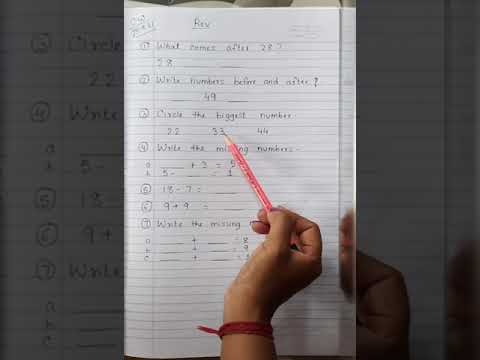 Rev
① What comes after 28?
28 ____ ____ ____ ____
② Write numbers before and after?
____ 49 ____
③ Circle the biggest number
22 33 44
④ Write the missing numbers-
a ____ + 3 = 5
b 5 - ____ = 1
⑤ 18 - 7 = ____
⑥ 9 + 9 = ____
⑦ Write the missing
a ____ + ____ = 8
b ____ + ____ = 9
c ____ + ____ =